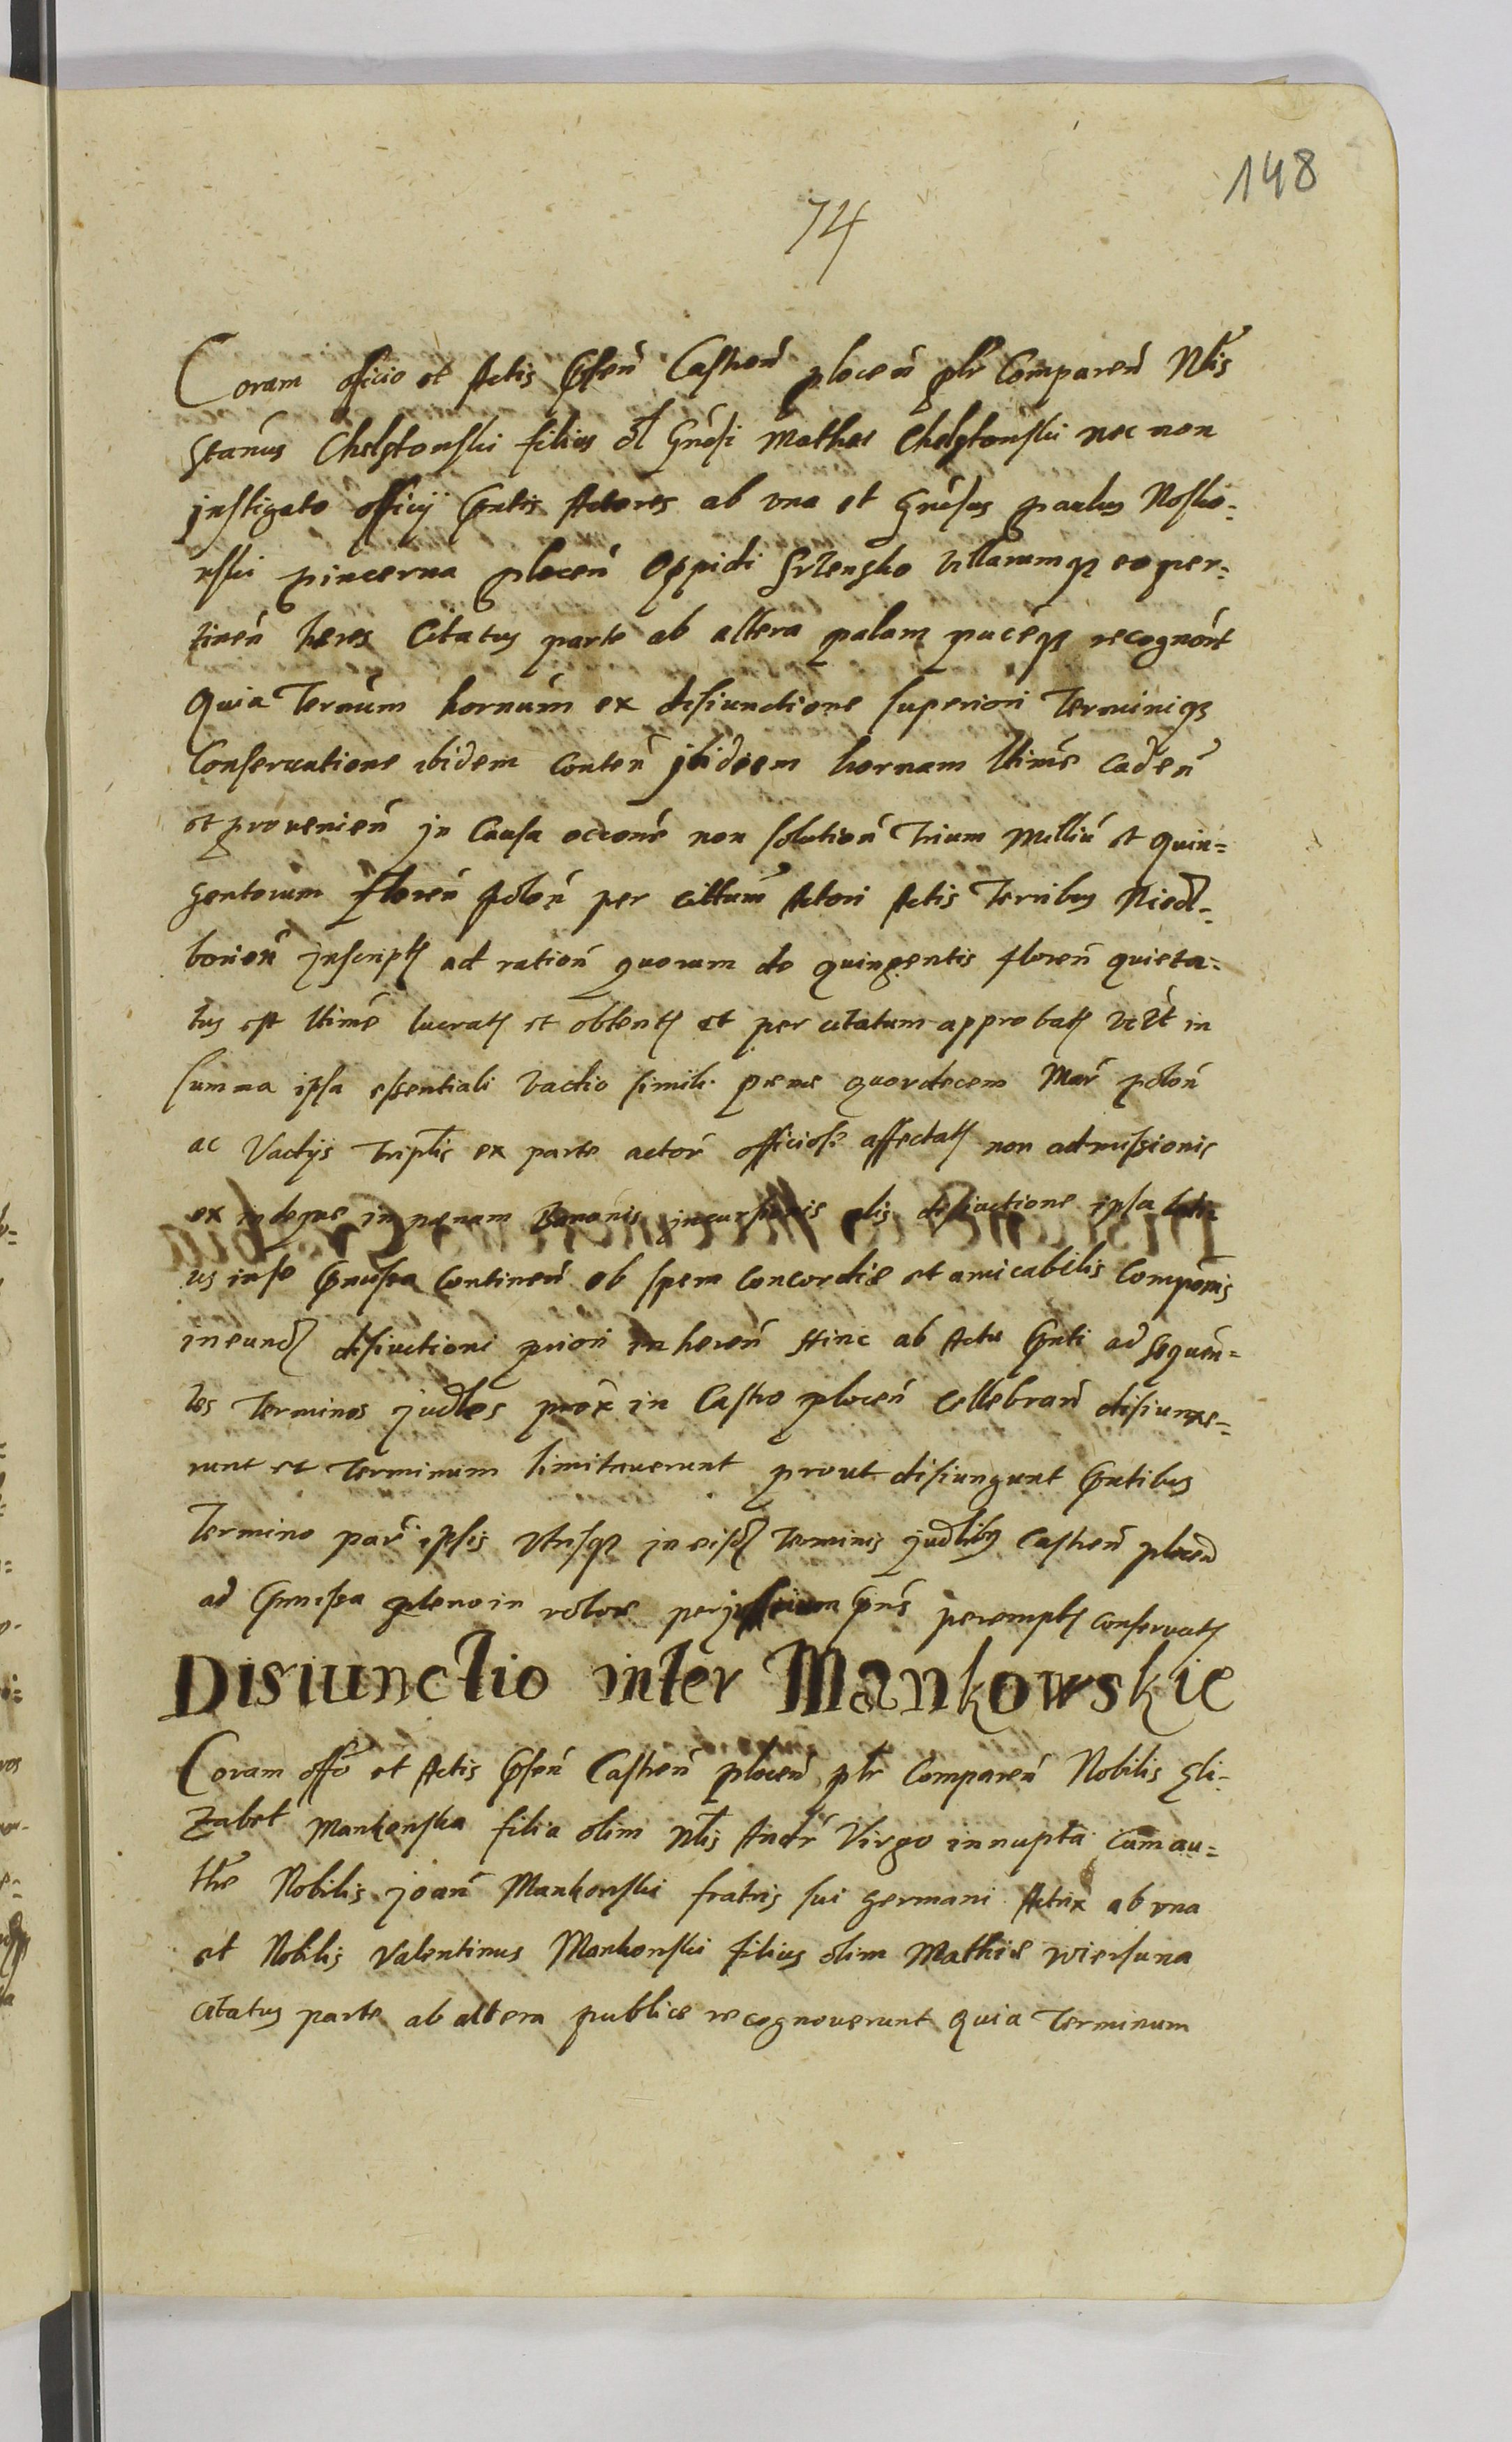 148
74
Coram officio et Actis Castren plocen plr Comparen Nblis
Stanus Chelstowski filius ol Gnosi Mathæ Chelstowski nec non
instigator officij Actores ab vna et Gnosus paulus Nosko=
wski pincerna plocen Oppidi Srzensko villarumq eo per=
tinen heres Citatus parte ab altera palam recognort
Quia Ternum hornum ex disiunctione superiori Terminiq
Conseruatione ibidem conten ibidem hornam ltime caden
et prouenien in Causa occone non solution Trium Milliu et quin=
gentorum floren polon per cittum Actori Actis Terribus Niedz=
borien inscript ad ration quorum de quingentis floren quieta=
tus est ltime lucrat et obtent et per citatum approbat in
summa ipsa essentiali vadio simili pene quordecem Mar polon
ac Vadijs Triplis ex parte actor officios affectat non admissionis
ex indeque in penam incursionis disiuctione ipsa lati=
us in se continen ob spem concordiæ et amicabilis compoms
ineund disiuctioni priori inheren Hinc ab Actu ad sequen=
tes Terminos judles prox in Castro plocen cellebran disiunxe=
runt et Terminum limitauerunt prout disiungunt
Termino par ipsis vtrisq in eisd Terminis judlibus Castren plocen
ad pleno in robore perempt conseruat
Disiunctio inter Mankowskie
Coram offo et Actis Castren plocen plr Comparen Nobilis Eli=
zabet Mankowska filia olim Nblis Andr Virgo innupta cum au=
the Nobilis joan Mankowski fratris sui germani Actrix ab vna
et Nobilis Valentinus Mankowski filius olim Mathiæ wiersuna
citatus parte ab altera publice recognouerunt Quia Terminum